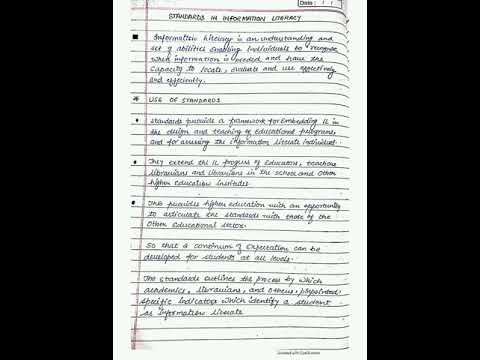 Date :
STANDARDS IN INFORMATION LITERACY
Information literacy is an understanding and
set of abilities enabling individuals to recognise
when information is needed and have the
capacity to locate, evaluate and use effectively
and efficiently.
* USE OF STANDARDS
• Standards provide a framework for embedding IL in
the design and teaching of educational programs,
and for assessing the information literate individual.
• They extend the IL progress of Educators, teachers
librarians and librarians in the school and other
higher education institutes
• This provides higher education with an opportunity
to articulate the standards with those of the
other Educational sectors.
So that a continuum of Expectation can be
developed for students at all levels.
The standards outlines the process by which
academics, librarians, and others,
specific indicators which identify a student
as information literate
Scanned with CamScanner